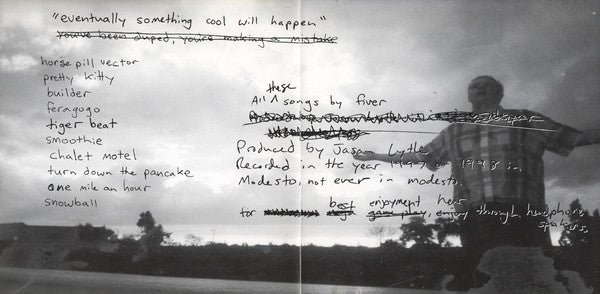 "eventually something cool will happen"
you've been duped, you're making a mistake
horse pill vector
pretty kitty
builder
feragogo
tiger beat
smoothie
chalet motel
turn down the pancake
one mile an hour
snowball
these
All ^ songs by fiver
Produced by Jason Lytle
Recorded in the year 1997 or 1998 in
Modesto, not ever in modesto.
best enjoyment hear
for game play, enjoy through headphone